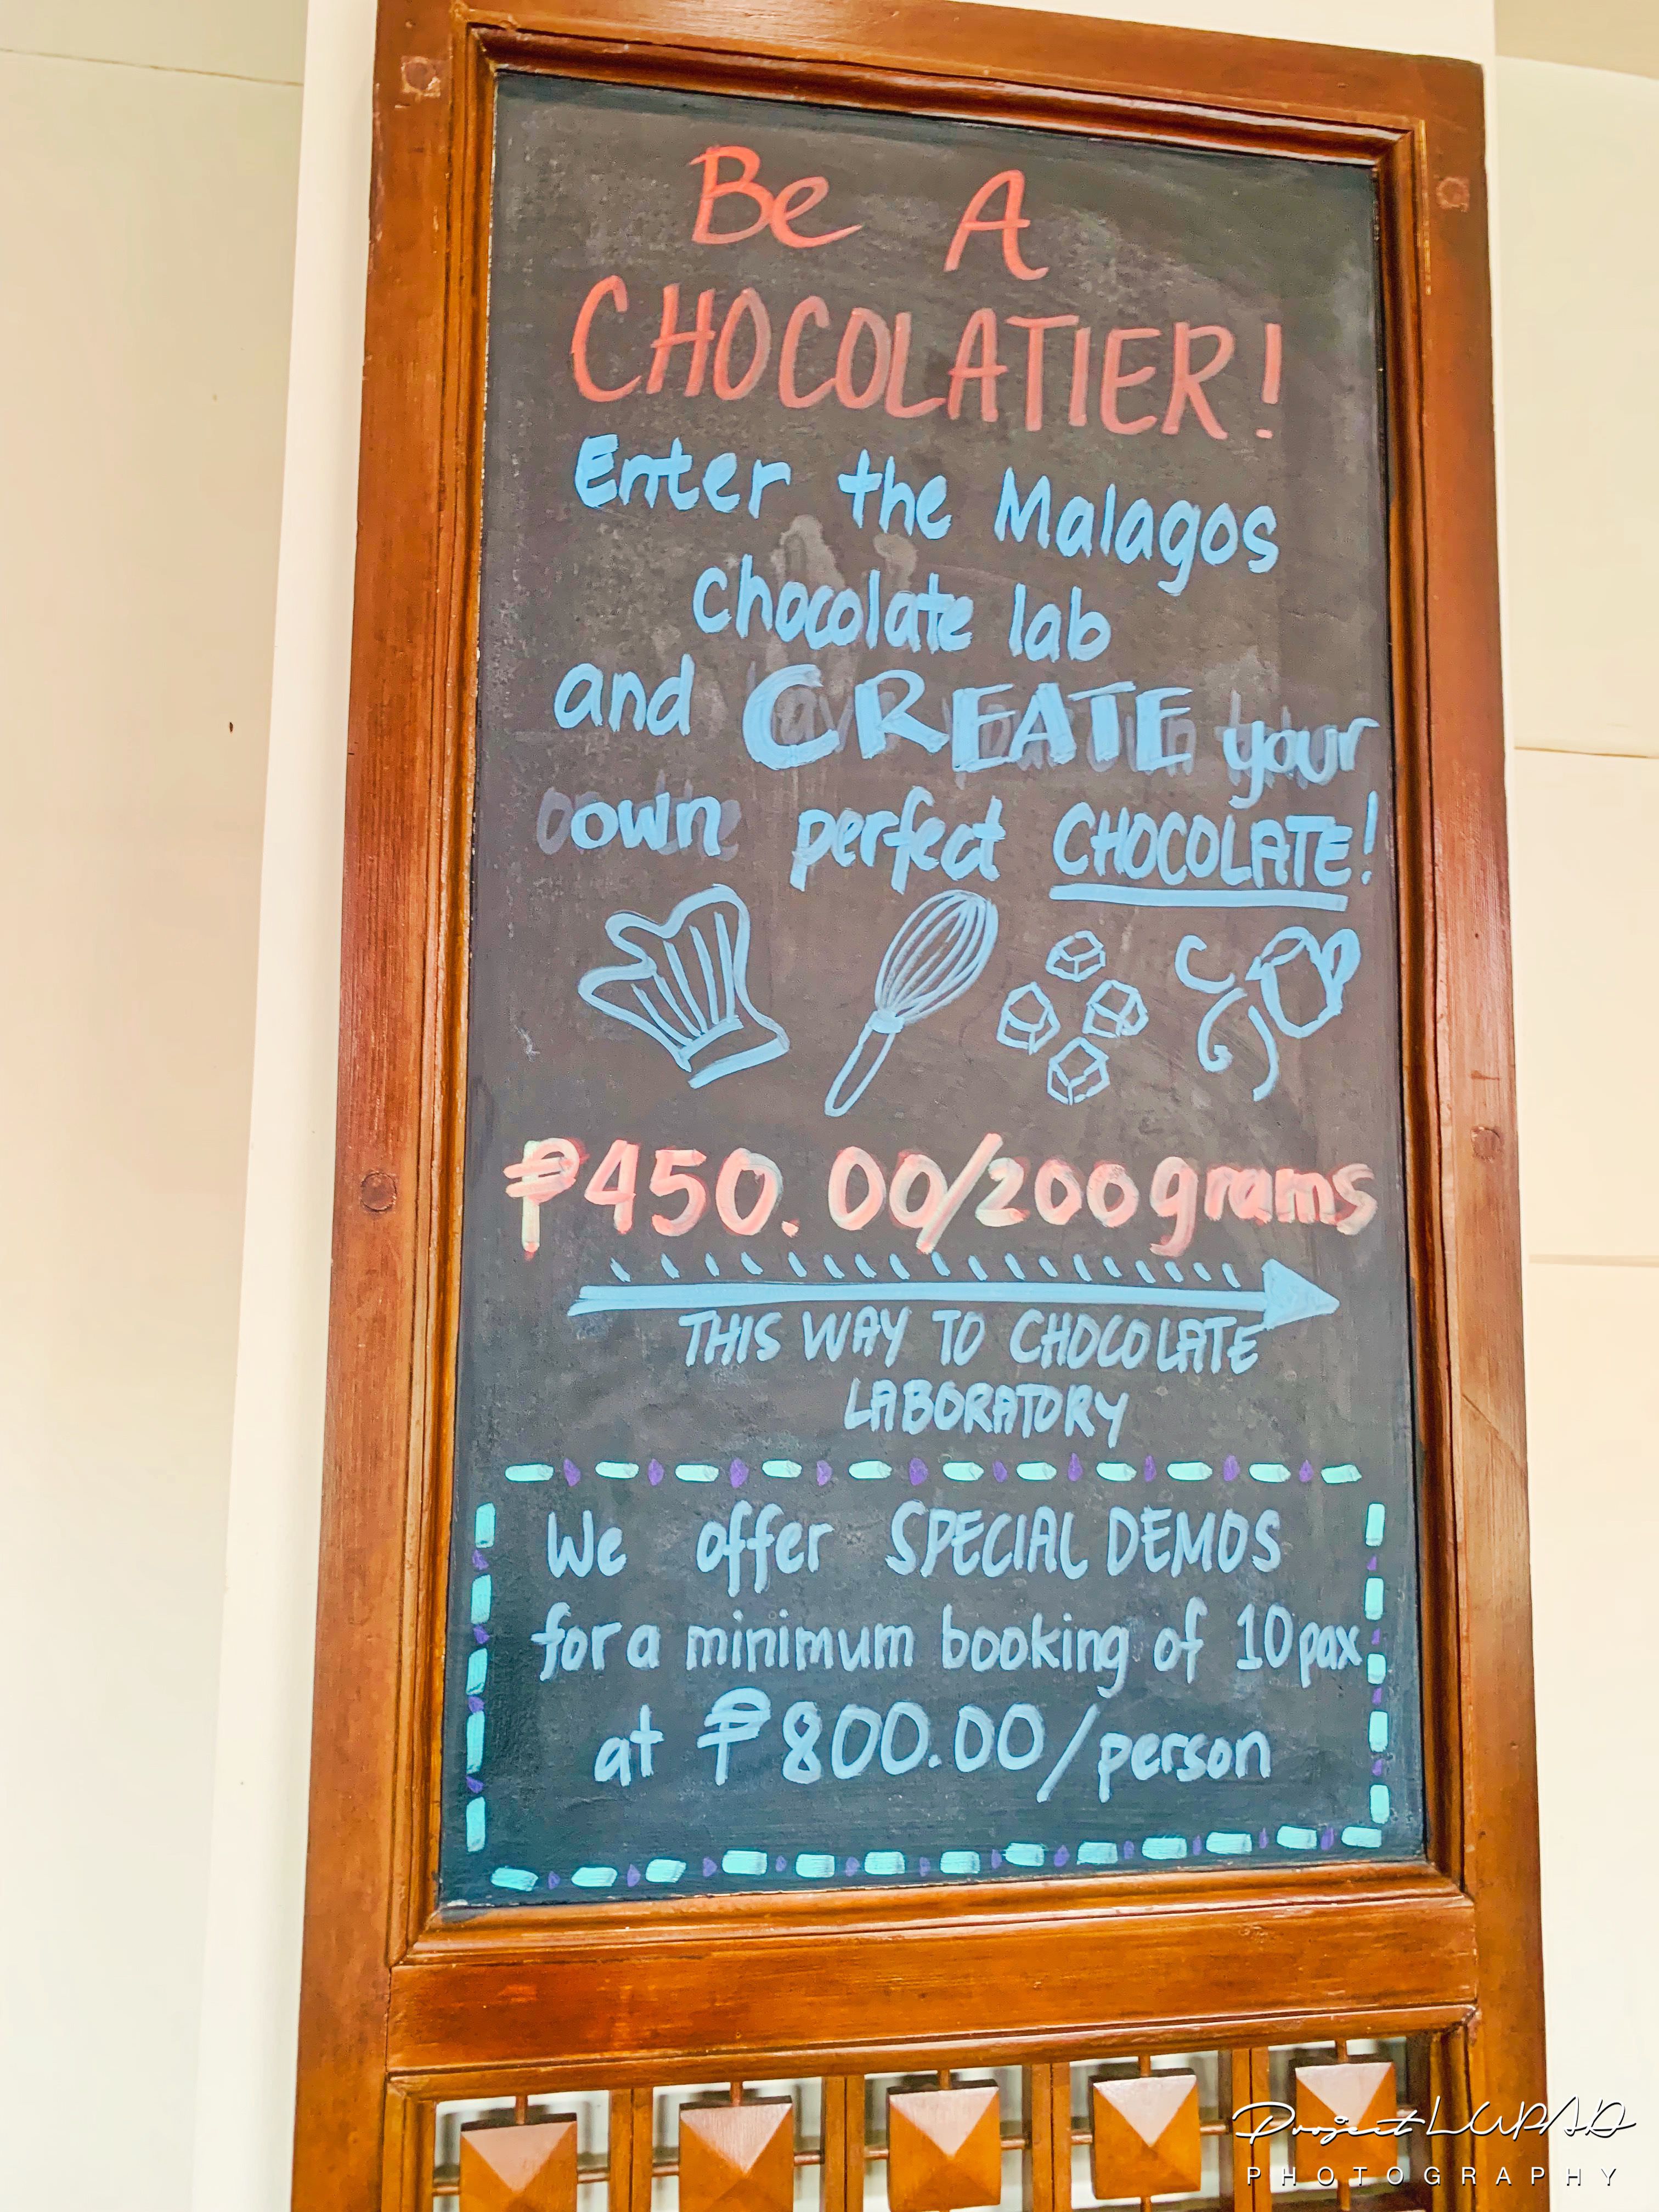 Be A
CHOCOLATIER!
Enter the Malagos
chocolate lab
and CREATE your
own perfect CHOCOLATE!
₱450.00/200grams
THIS WAY TO CHOCOLATE
LABORATORY
We offer SPECIAL DEMOS
for a minimum booking of 10 pax
at ₱800.00/person
Project LUPAD
PHOTOGRAPHY